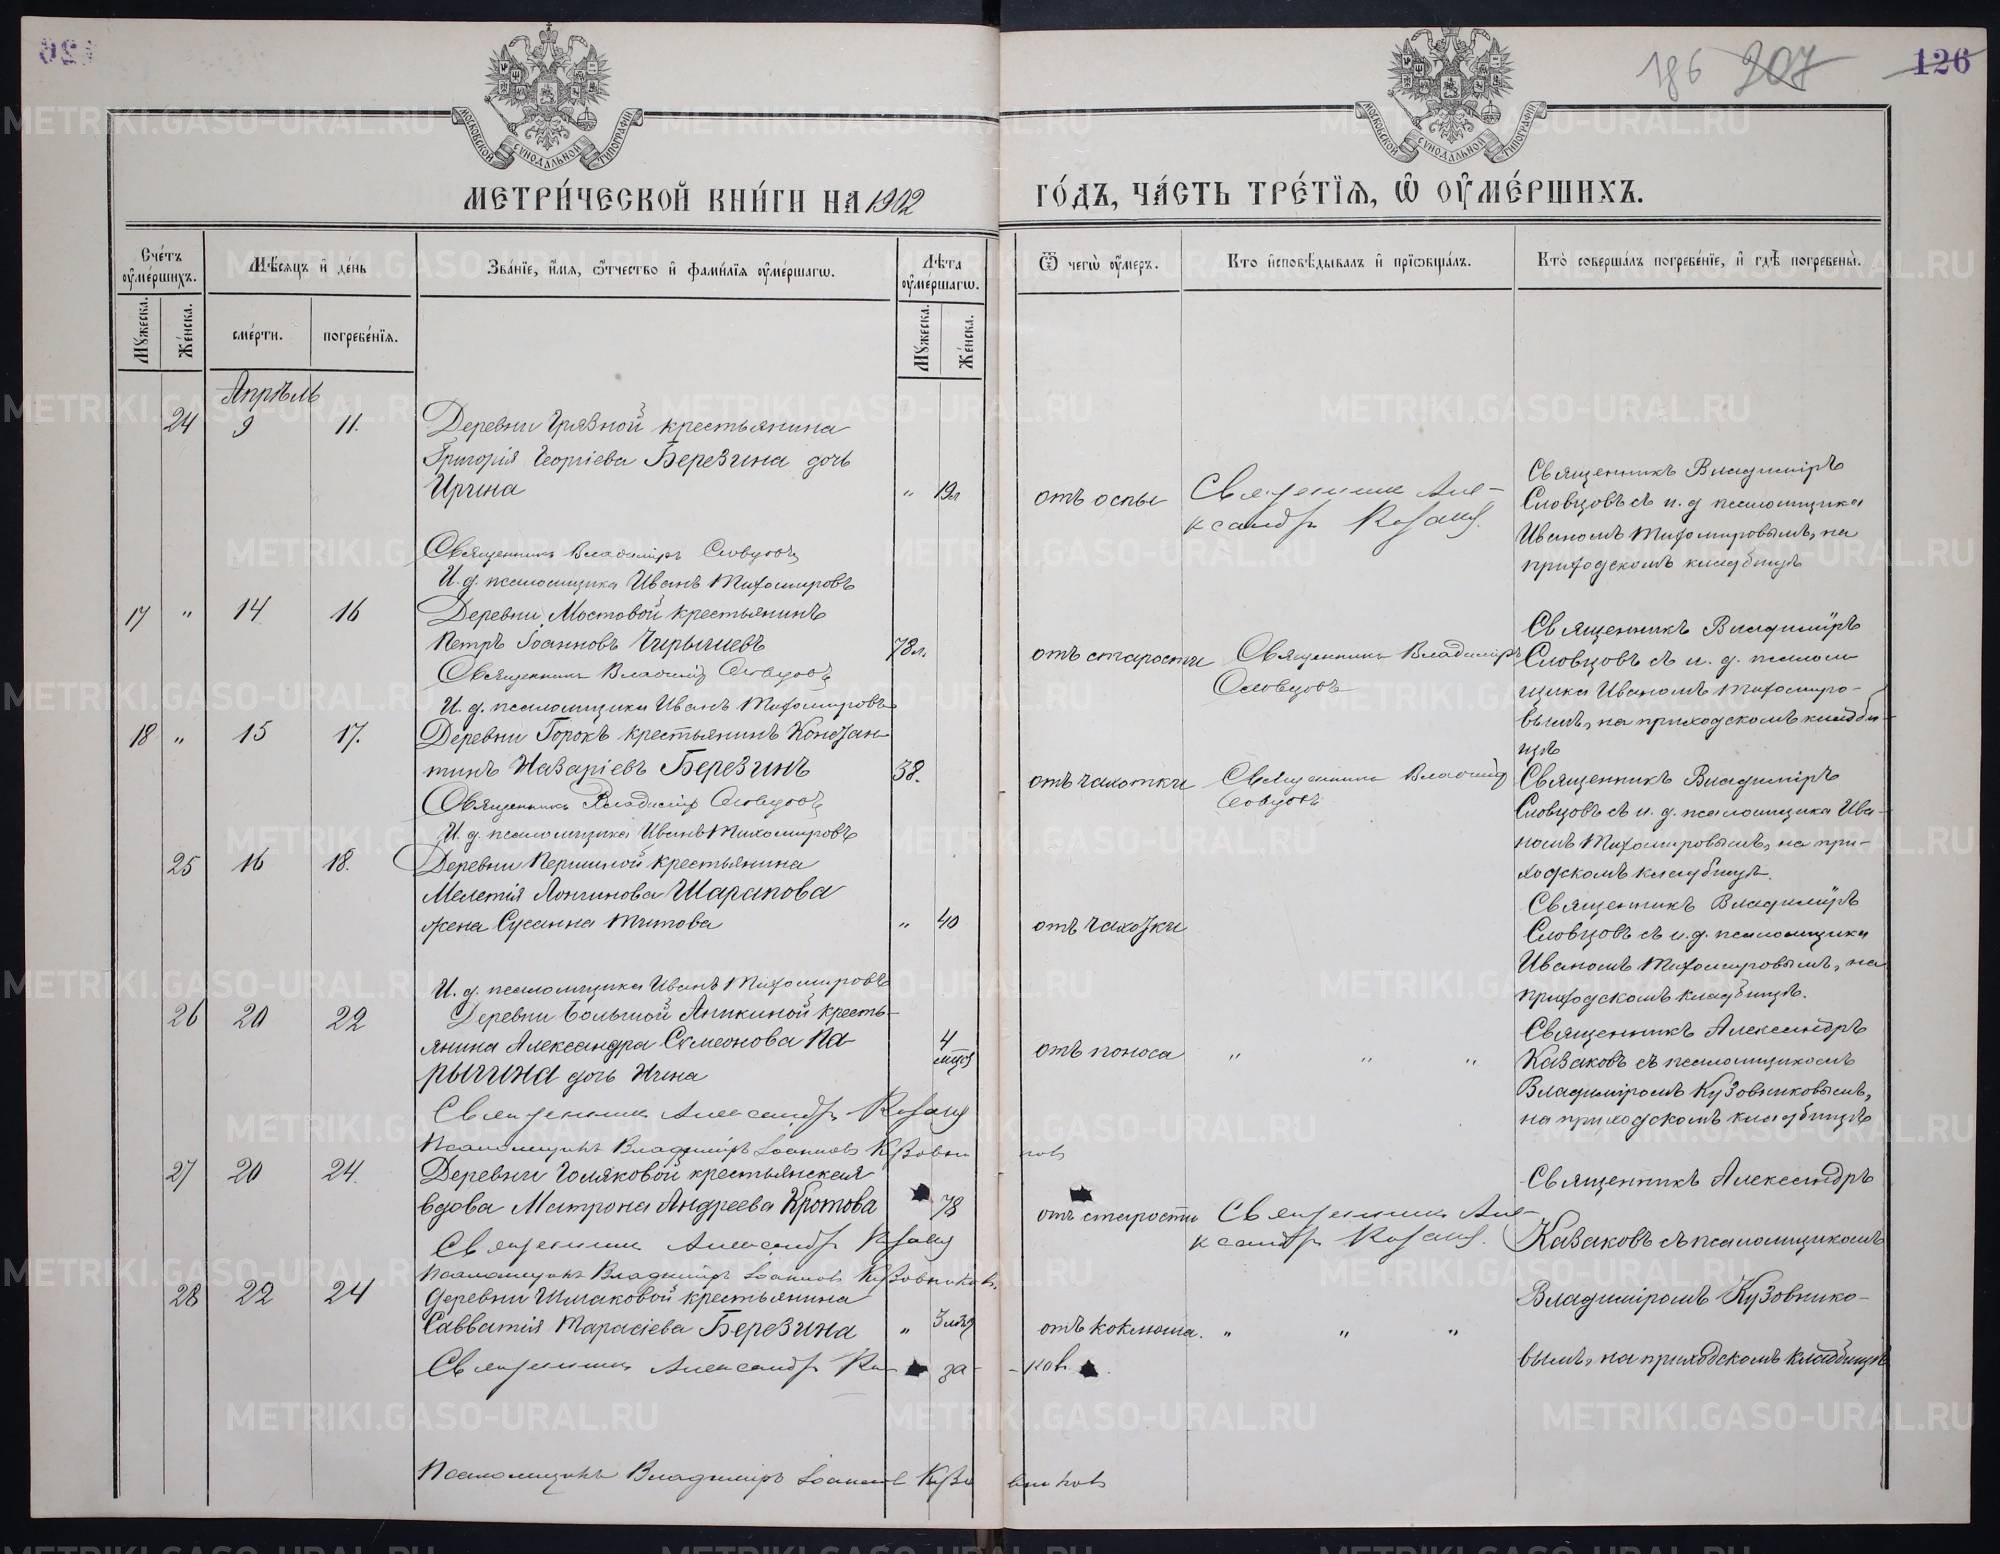 126
186 207
МОСКОВСКОЙ СУНОДАЛЬНОЙ ТИПОГРАФІИ
МОСКОВСКОЙ СУНОДАЛЬНОЙ ТИПОГРАФІИ
МЕТРИ́ЧЕСКОЙ КНИ́ГИ НА 1902
ГО́ДЪ, ЧА́СТЬ ТРЕ́ТІѦ, Ѡ ОУ҆МЕ́РШИХЪ.
Сче́тъ оу҆ме́ршихъ.
Мꙋжеска.
Же́нска.
Мѣ́сяцъ и҆ де́нь
сме́рти.
погребе́нїѧ.
Зва́нїе, и҆́мѧ, ѻ҆́тчество и҆ фами́лїѧ оу҆ме́ршагѡ.
Лѣ́та оу҆ме́ршагѡ.
Мꙋжеска.
Же́нска.
Ѿ чегѡ̀ оу҆́меръ.
Кто̀ и҆сповѣ́дывалъ и҆ прїѡбща́лъ.
Кто̀ соверша́лъ погребе́нїе, и҆ гдѣ̀ погребены̀.
Апрѣль
24 9 11. Деревни Грязной крестьянина
Григорія Георгіева Березина дочь
Ирина " 19л
отъ оспы
Священникъ Але-
ксандръ Казаковъ.
Священникъ Владиміръ
Словцовъ съ и. д псаломщика
Иваномъ Тихомировымъ, на
приходскомъ кладбищѣ
Священникъ Владиміръ Словцовъ
И. д. псаломщика Иванъ Тихомировъ
17 " 14 16 Деревни Мостовой крестьянинъ
Петръ Іоанновъ 78л.
отъ старости
Священникъ Владиміръ
Словцовъ
Священникъ Владиміръ
Словцовъ съ и. д. псалом
щика Иваномъ Тихомиро-
вымъ, на приходскомъ кладби-
щѣ
Священникъ Владиміръ Словцовъ
И. д. псаломщика Иванъ Тихомировъ
18 " 15 17. Деревни Горокъ крестьянинъ Констан
тинъ Назаріевъ Березинъ 38.
отъ чахотки
Священникъ Владиміръ
Словцовъ
Священникъ Владиміръ
Словцовъ съ и. д. псаломщика Ива-
номъ Тихомировымъ, на при-
ходскомъ кладбищѣ.
Священникъ Владиміръ Словцовъ
И. д. псаломщика Иванъ Тихомировъ
25 16 18. Деревни Першиной крестьянина
Мелетія Лонгинова Шарапова
жена Сусанна Титова " 40
отъ чахотки
Священникъ Владиміръ
Словцовъ съ и. д. псаломщика
Иваномъ Тихомировымъ, на
приходскомъ кладбищѣ.
И. д. псаломщика Иванъ Тихомировъ
26 20 22 Деревни Большой Аникиной кресть-
янина Александра Сѵмеонова Па-
рыгина дочь Нина 4 мѣся
отъ поноса " " "
Священникъ Александръ
Казаковъ съ псаломщикомъ
Владиміромъ Кузовниковымъ,
на приходскомъ кладбищѣ
Священникъ Александръ Казаковъ
Псаломщикъ Владиміръ Іоанновъ Кузовни ковъ
27 20 24. Деревни Голяковой крестьянская
вдова Матрона Андреева Кротова 78
отъ старости
Священникъ Але-
ксандръ Казаковъ.
Священникъ Александръ
Казаковъ съ псаломщикомъ
Священникъ Александръ Казаковъ
Псаломщикъ Владиміръ Іоанновъ Кузовниковъ.
28 22 24 Деревни Шмаковой крестьянина
Савватія Тарасіева Березина "
отъ коклюша. " " "
Владиміромъ Кузовнико-
вымъ, на приходскомъ кладбищѣ
Священникъ Александръ Ка- за- -ковъ.
Псаломщикъ Владиміръ Іоанновъ Кузо вниковъ
METRIKI.GASO-URAL.RU